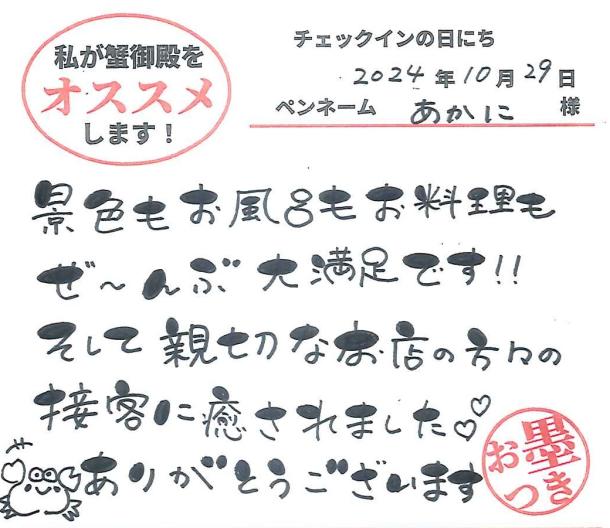 私が蟹御殿を
オススメ
します！
チェックインの日にち
2024年10月29日
ペンネーム あかに 様
景色もお風呂もお料理も
ぜ〜んぶ大満足です!!
そして親切なお店の方々の
接客に癒されました♡♡
ありがとうございます
お墨
つき